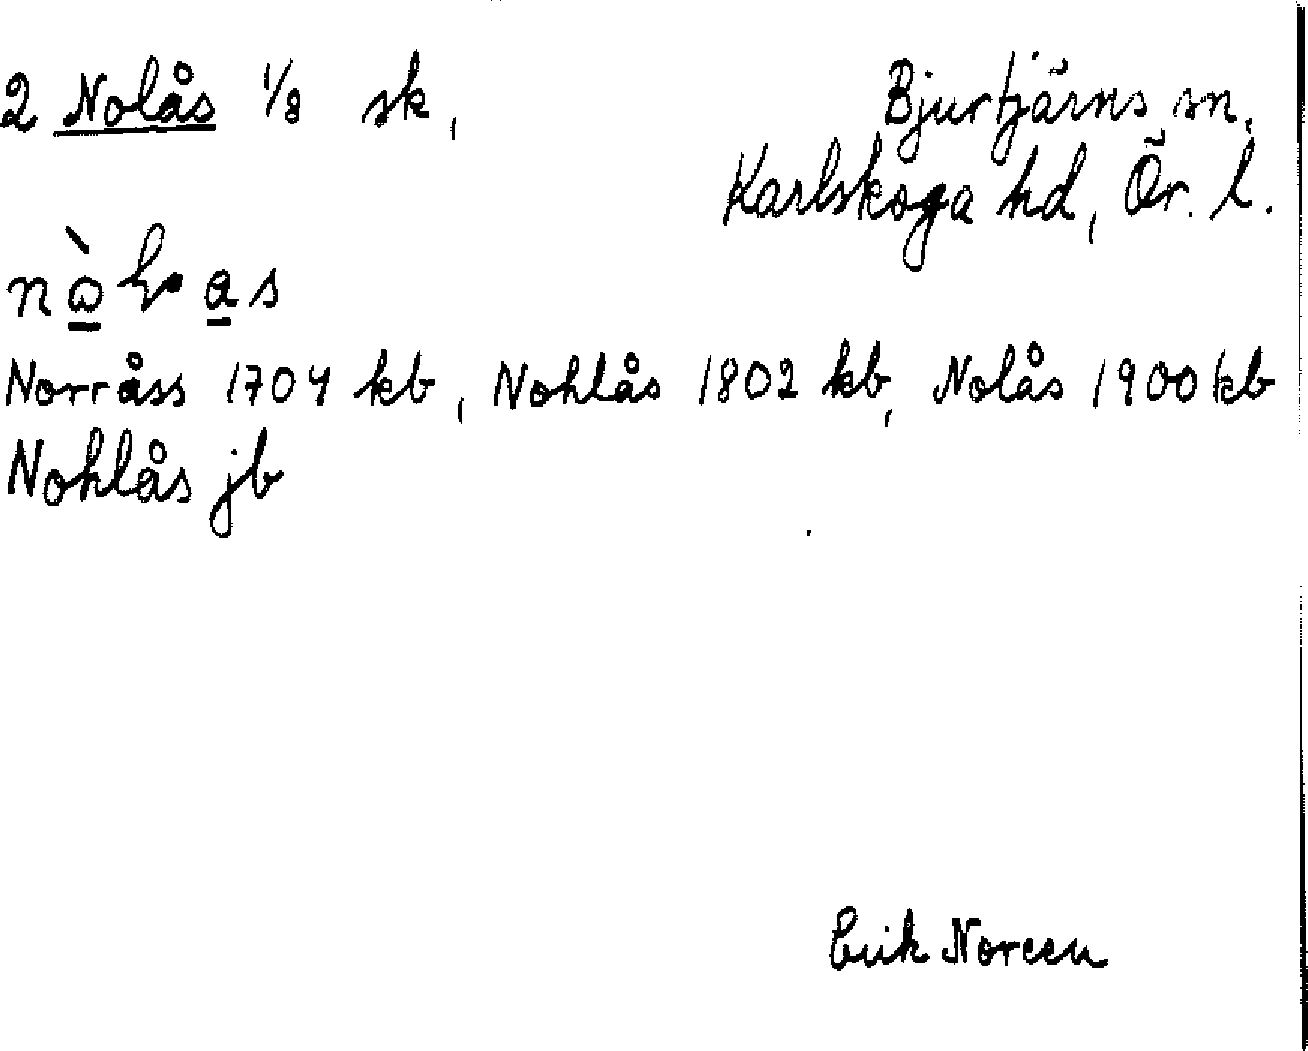 2 Nolås 1/8 sk,
Bjurtjärns sn,
Karlskoga hd, Ör. l.
Norråss 1704 kb, Nohlås 1802 kb, Nolås 1900 kb
Nohlås jb
Erik Noreen